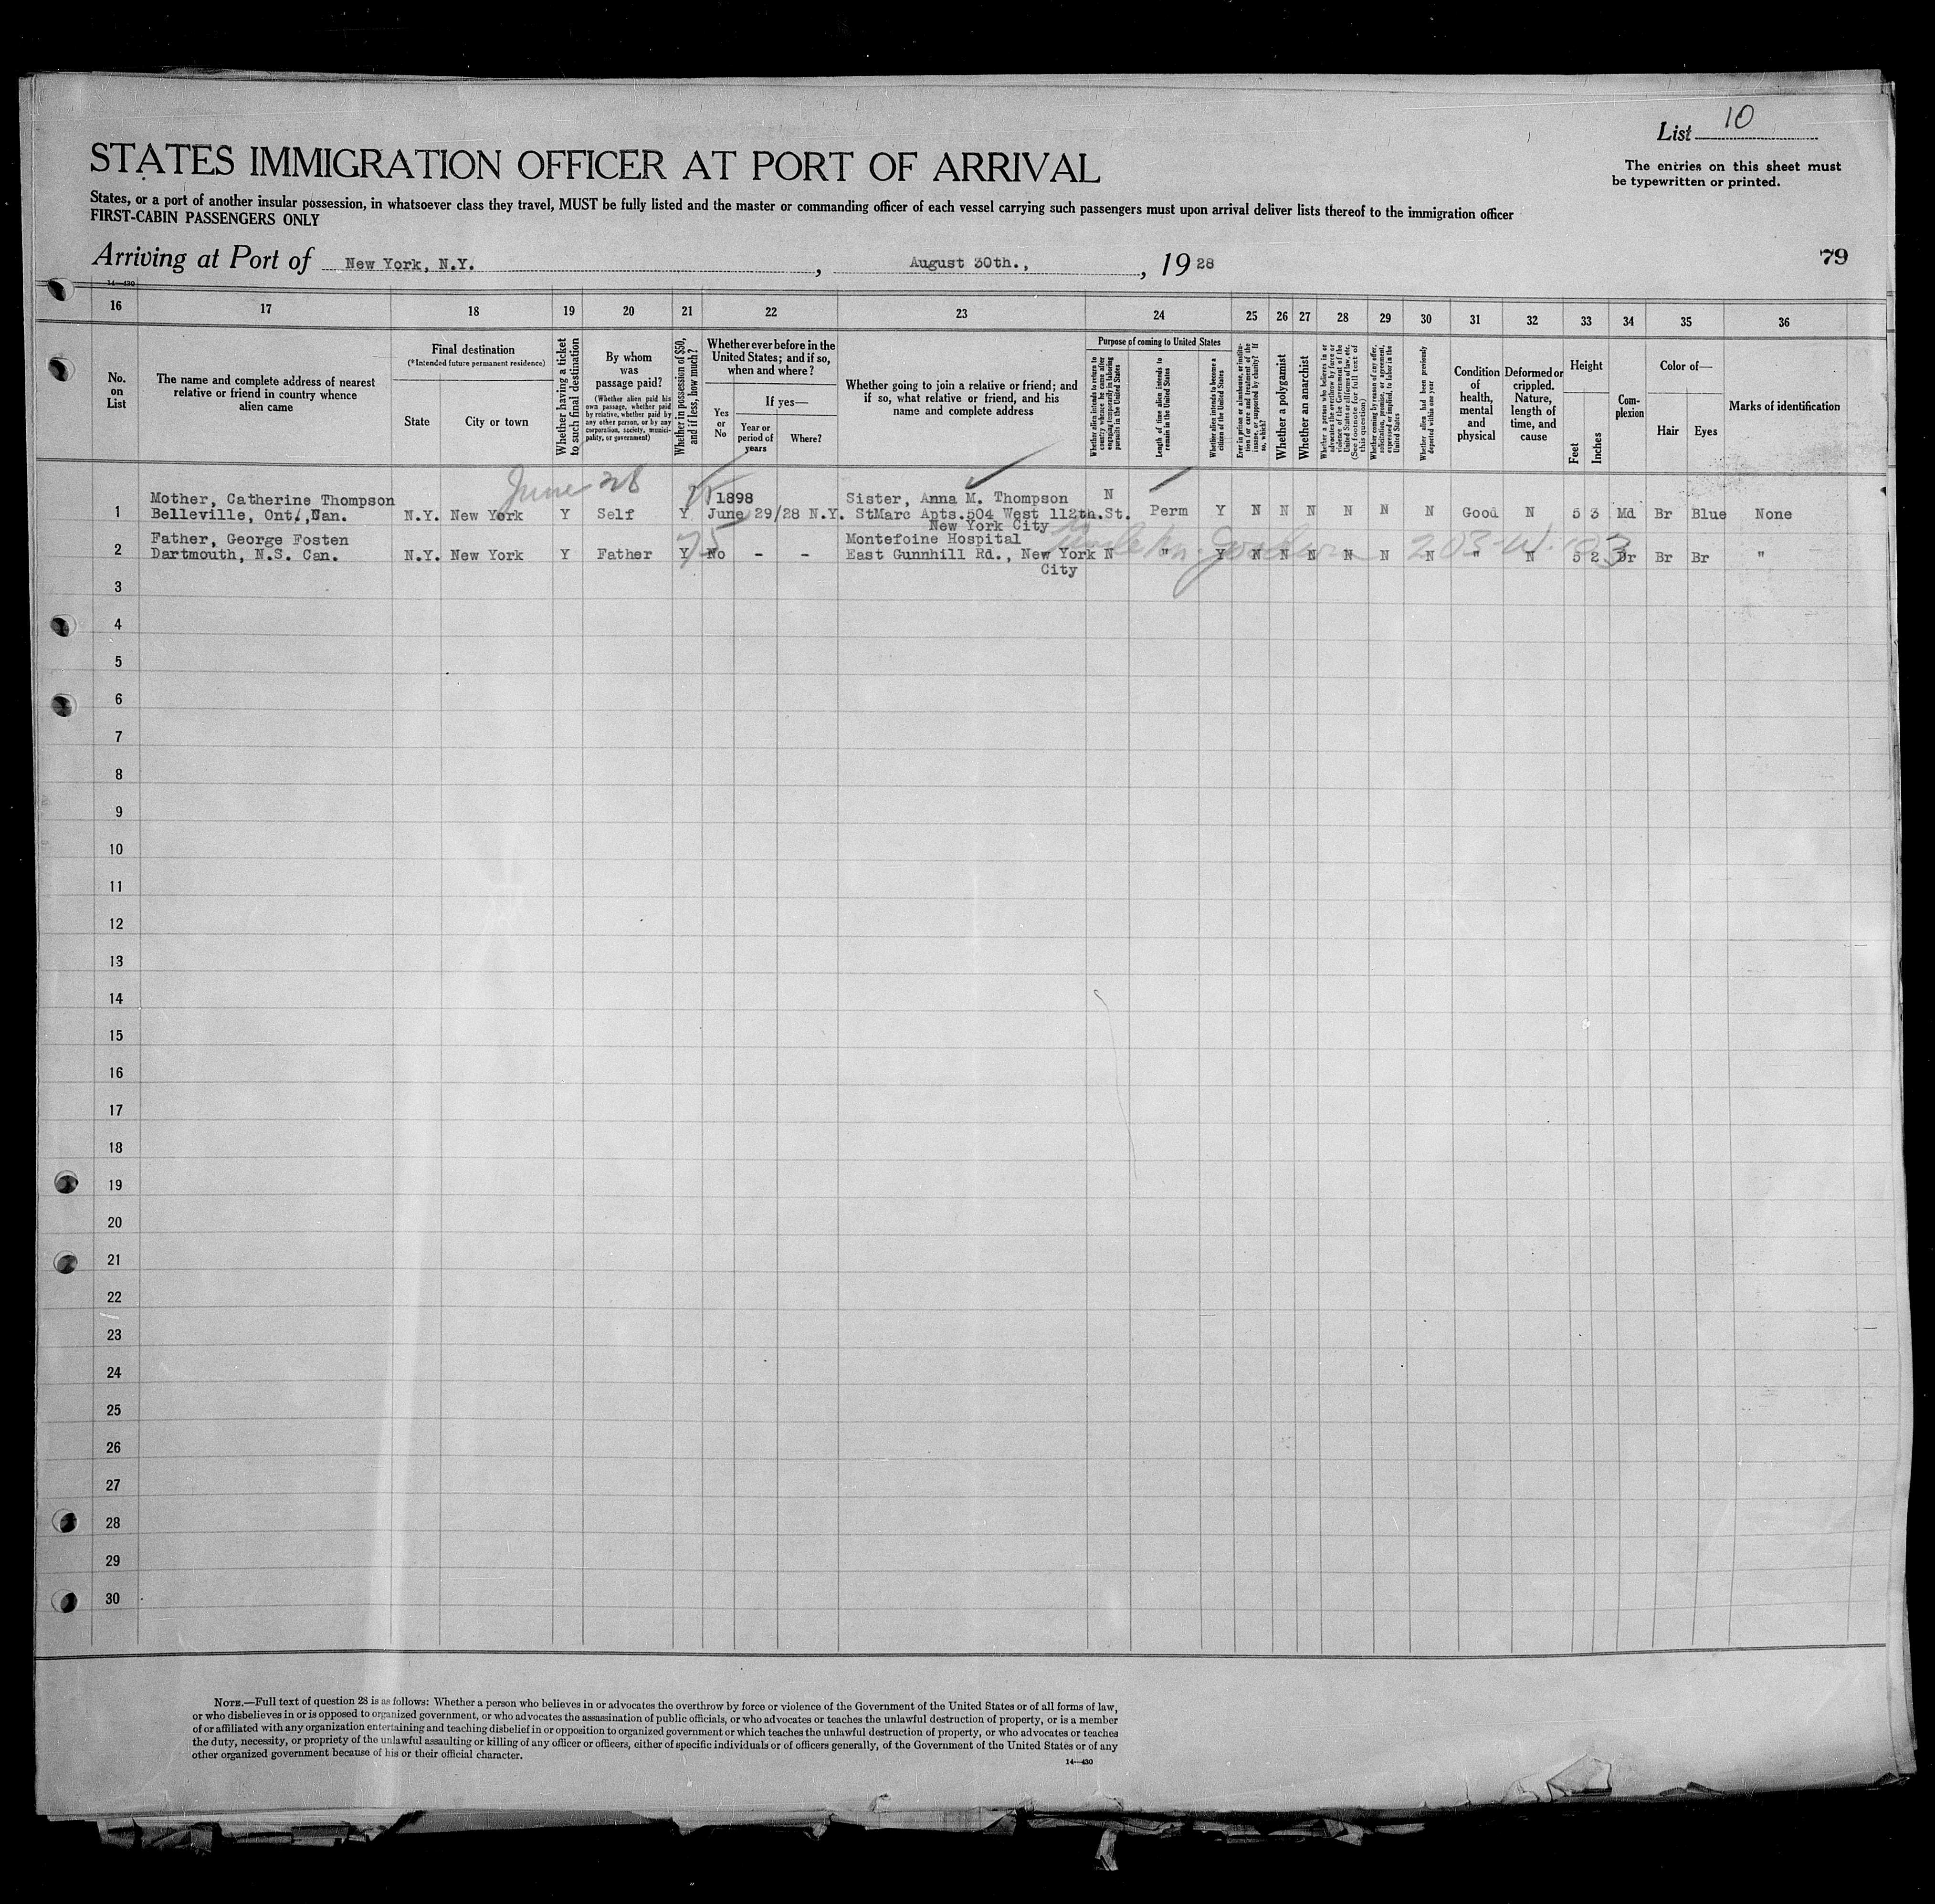 List 10
The entries on this sheet must
be typewritten or printed.
STATES IMMIGRATION OFFICER AT PORT OF ARRIVAL
States, or a port of another insular possession, in whatsoever class they travel, MUST be fully listed and the master or commanding officer of each vessel carrying such passengers must upon arrival deliver lists thereof to the immigration officer
FIRST-CABIN PASSENGERS ONLY
Arriving at Port of New York, N.Y., August 30th., , 19 28
79
14—430
16 17 18 19 20 21 22 23 24 25 26 27 28 29 30 31 32 33 34 35 36
No.
on
List
The name and complete address of nearest
relative or friend in country whence
alien came
Final destination
(*Intended future permanent residence)
State
City or town
Whether having a ticket
to such final destination
By whom
was
passage paid?
(Whether alien paid his
own passage, whether paid
by relative, whether paid by
any other person, or by any
corporation, society, munici-
pality, or government)
Whether in possession of $50,
and if less, how much?
Whether ever before in the
United States; and if so,
when and where?
Yes
or
No
If yes—
Year or
period of
years
Where?
Whether going to join a relative or friend; and
if so, what relative or friend, and his
name and complete address
Purpose of coming to United States
Whether alien intends to return to
country whence he came after
engaging temporarily in laboring
pursuits in the United States
Length of time alien intends to
remain in the United States
Whether alien intends to become a
citizen of the United States
Ever in prison or almshouse, or institu-
tion for care and treatment of the
insane, or supported by charity? If
so, which?
Whether a polygamist
Whether an anarchist
Whether a person who believes in or
advocates the overthrow by force or
violence of the Government of the
United States or all forms of law, etc.
(See footnote for full text of
this question)
Whether coming by reason of any offer,
solicitation, promise, or agreement,
expressed or implied, to labor in the
United States
Whether alien had been previously
deported within one year
Condition
of
health,
mental
and
physical
Deformed or
crippled.
Nature,
length of
time, and
cause
Height
Feet
Inches
Com-
plexion
Color of—
Hair
Eyes
Marks of identification
June 28
Mother, Catherine Thompson 1898 Sister, Anna M. Thompson N
1 Belleville, Ont., Can. N.Y. New York Y Self Y June 29/28 N.Y. StMarc Apts.504 West 112th.St. Perm Y N N N N N N Good N 5 3 Md Br Blue None
New York City
75
Father, George Fosten Montefoine Hospital
2 Dartmouth, N.S. Can. N.Y. New York Y Father Y No - - East Gunnhill Rd., New York N " Y N N N N N N " N 5 2 Dr Br Br "
City
203 W.
3
4
5
6
7
8
9
10
11
12
13
14
15
16
17
18
19
20
21
22
23
24
25
26
27
28
29
30
NOTE.—Full text of question 28 is as follows: Whether a person who believes in or advocates the overthrow by force or violence of the Government of the United States or of all forms of law,
or who disbelieves in or is opposed to organized government, or who advocates the assassination of public officials, or who advocates or teaches the unlawful destruction of property, or is a member
of or affiliated with any organization entertaining and teaching disbelief in or opposition to organized government or which teaches the unlawful destruction of property, or who advocates or teaches
the duty, necessity, or propriety of the unlawful assaulting or killing of any officer or officers, either of specific individuals or of officers generally, of the Government of the United States or of any
other organized government because of his or their official character.
14—430